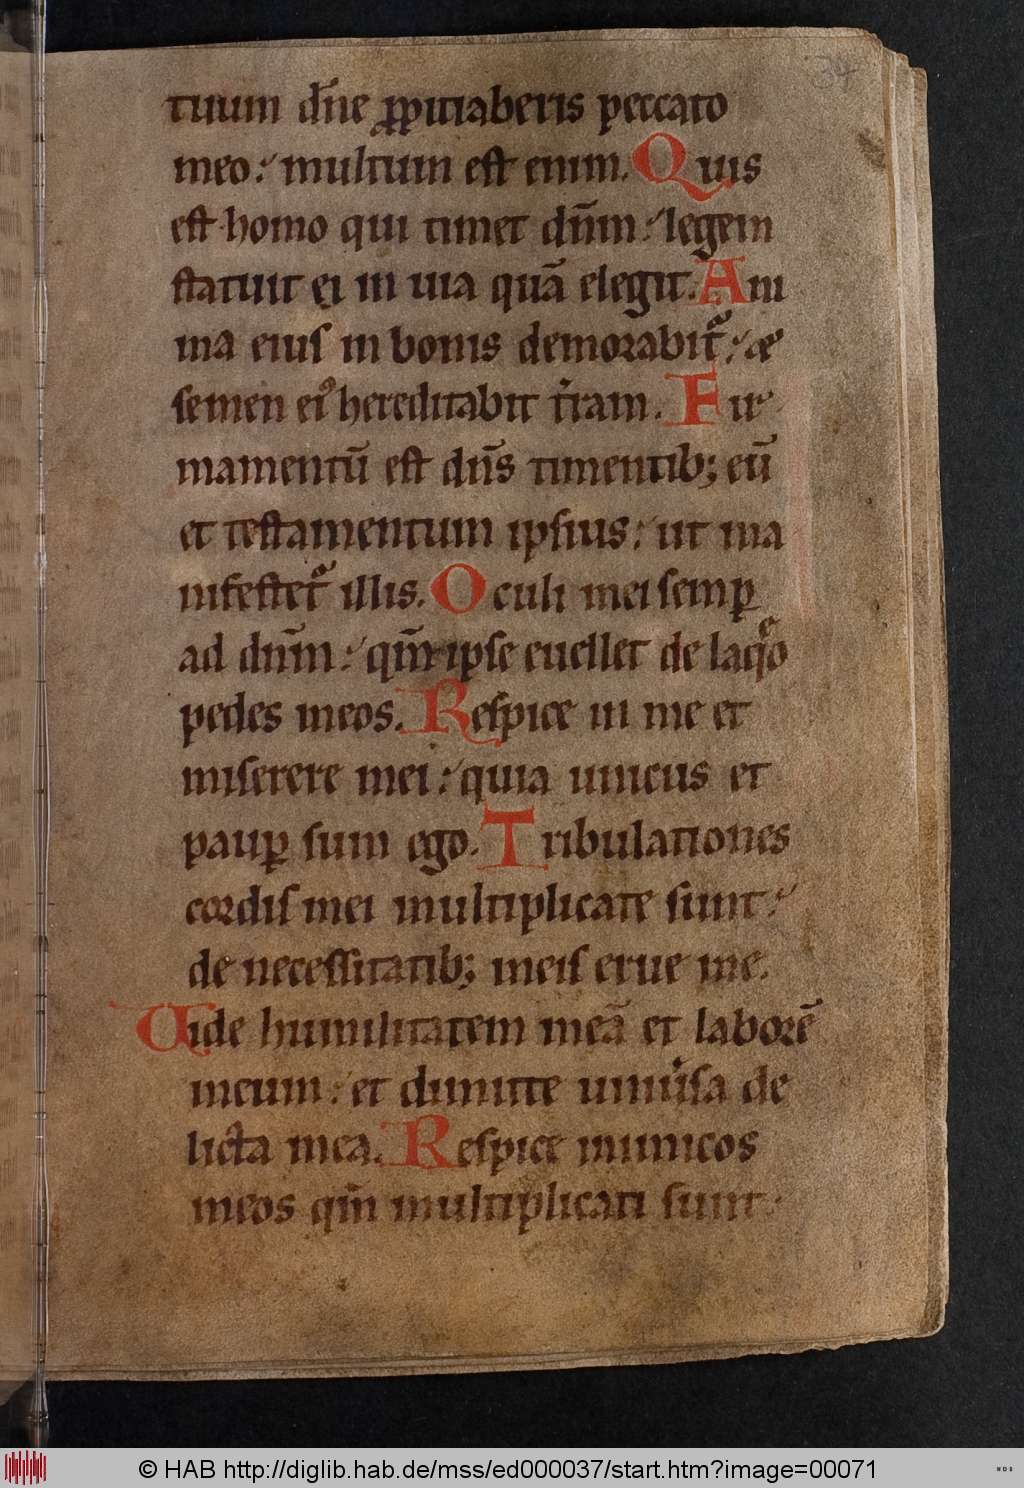 34
tuum dn̄e ꝓpitiaberis peccato
meo:ʹ multum est enim. Quis
est homo qui timet dn̄m:ʹ legem
statuit ei in uia quā elegit. Ani
ma eius in bonis demorabit᷑:ʹ &
semen ei᷒ hereditabit t̄ram. Fir
mamentū est dn̄s timentib; eū
et testamentum ipsius:ʹ ut ma
nifestet᷑ illis. Oculi mei semꝑ
ad dn̄m:ʹ qm̄ ipse euellet de laqͤo
pedes meos. Respice in me et
miserere mei:ʹ quia unicus et
pauꝑ sum ego. Tribulationes
cordis mei multiplicate sunt:ʹ
de necessitatib; meis erue me.
Vide humilitatem meā et laborē
meum:ʹ et dimitte uniu͛sa de
licta mea. Respice inimicos
meos qm̄ multiplicati sunt:ʹ
© HAB http://diglib.hab.de/mss/ed000037/start.htm?image=00071